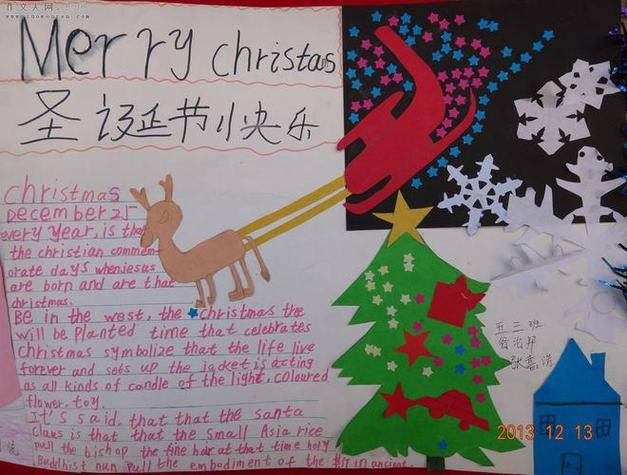 作文人网
www.zuowenren.com
Merry christas
圣诞节小快乐
christmas
December 25
every year, is the
the christian commem
orate days when jesus
are born and are that
christmas.
Be in the west, the christmas the
will be planted time that celebrates
christmas symbolize that the life live
forever and sets up the jacket is acting
as all kinds of candle of the light, coloured
flower. toy.
It's said. that that the santa
claus is that that the small Asia rice
pull the bishop the fine hair at that time holy
Buddhist nun pull the embodiment of the in ancient.
五三班
2013 12 13